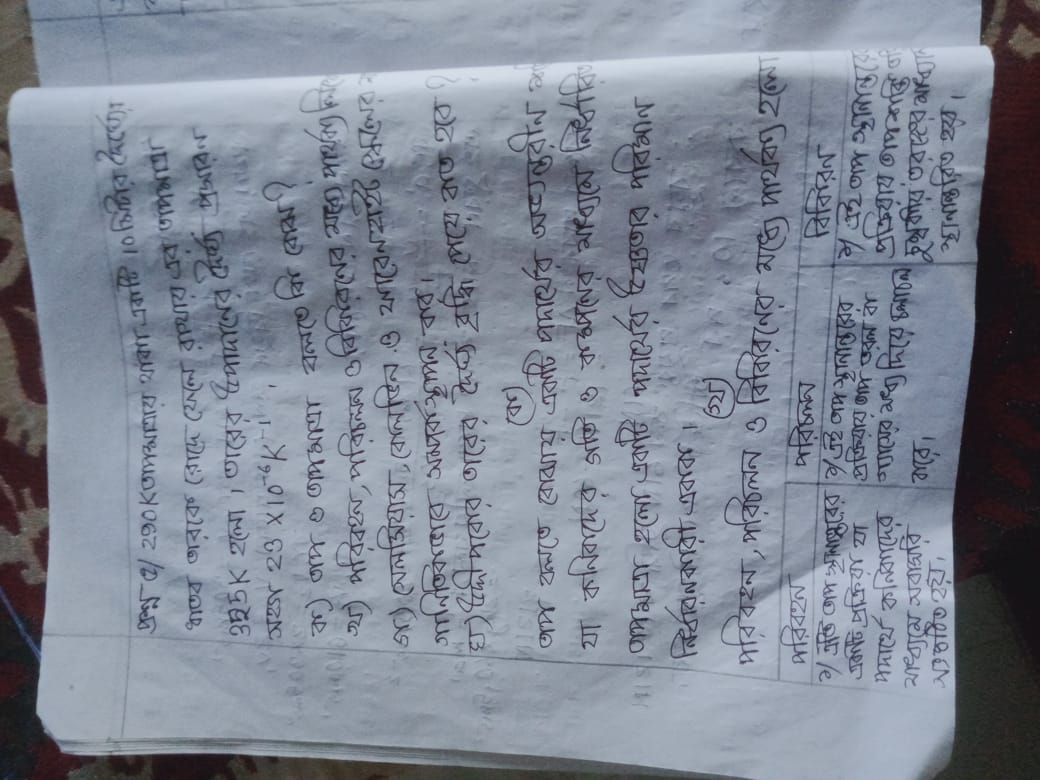 প্রশ্ন ৫/ 290K তাপমাত্রায় থাকা একটি 10 মিটার দৈর্ঘ্যের
ধাতব তারকে রোদে ফেলে রাখায় এর তাপমাত্রা
325K হলো। তারের উপাদানের দৈর্ঘ্য প্রসারন
সহগ 23 X10⁻⁶K⁻¹ ।
ক) তাপ ও তাপমাত্রা বলতে কি বোঝ?
খ) পরিবহন, পরিচলন ও বিকিরনের মধ্যে পার্থক্য
গ) সেলসিয়াস, কেলভিন ও ফারেনহাইট স্কেলের
গানিতিকভাবে সম্পর্ক স্থাপন কর।
ঘ) উদ্দীপকের তারের দৈর্ঘ্য বৃদ্ধি পেয়ে কত হবে?
(ক)
তাপ বলতে বোঝায় একটি পদার্থের অভ্যন্তরীন
যা কনিকাদের গতি ও কম্পনের মাধ্যমে নির্ধারিত
তাপমাত্রা হলো একটি পদার্থের উষ্ণতার পরিমান
নির্ধারনকারী একক।
(খ)
পরিবহন, পরিচলন ও বিকিরনের মধ্যে পার্থক্য হলো
পরিবহন
১/ এটি তাপ স্থানান্তরের
একটি প্রক্রিয়া যা
পদার্থে কনিকাদের
মাধ্যমে সরাসরি
সংঘঠিত হয়।
পরিচলন
১/ এই তাপ স্থানান্তরের
প্রক্রিয়ায় তাপ তরল বা
গ্যাসের মধ্য দিয়ে চলাচল
করে।
বিকিরন
১/ এই তাপ স্থানান্তরে
প্রক্রিয়ায় তাপশক্তি
চুম্বকীয় তরঙ্গের মাধ্যমে
স্থানান্তরিত হয়।